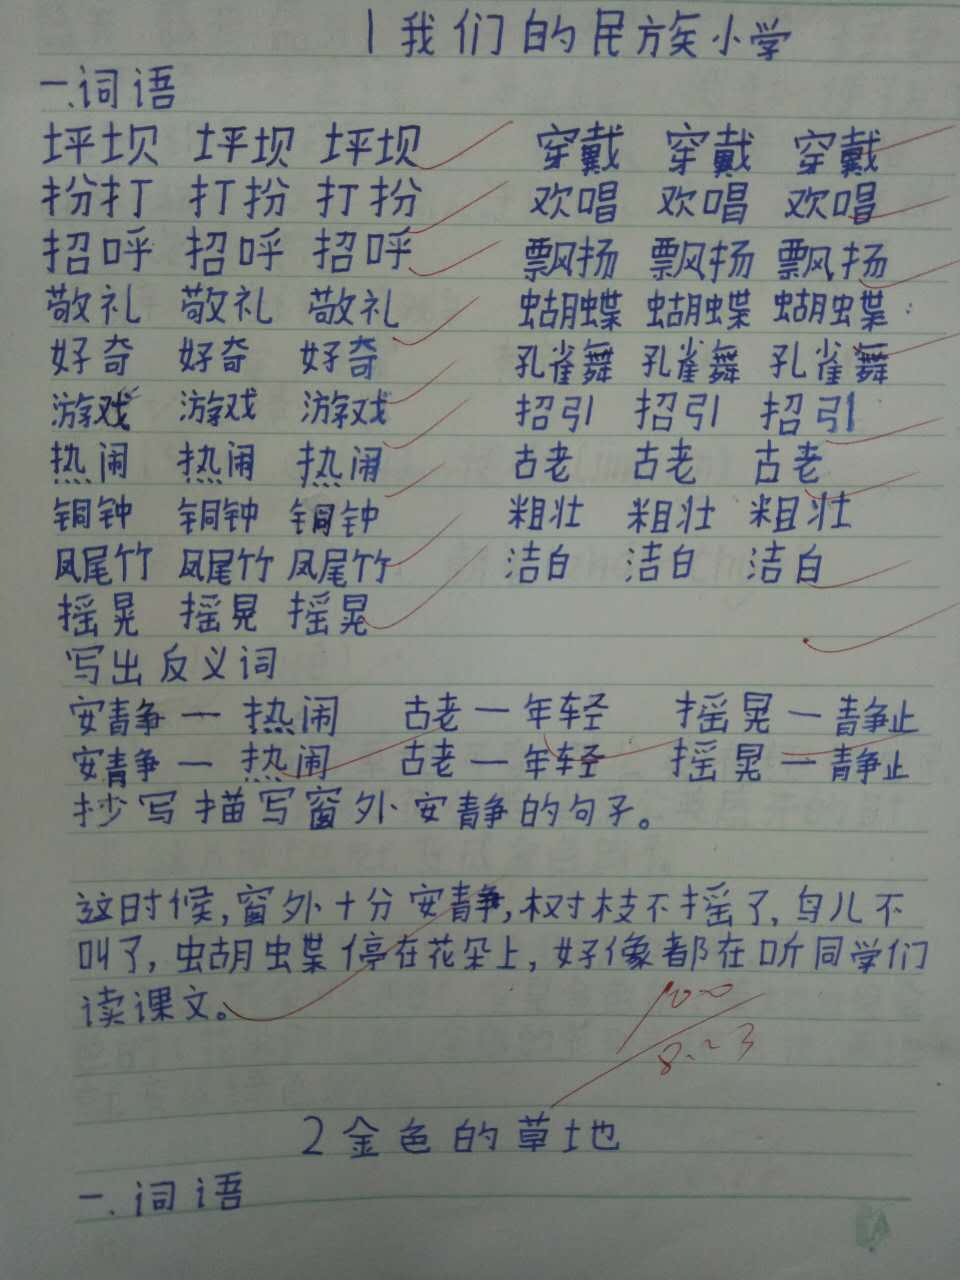 1 我们的民族小学
一.词语
坪坝 坪坝 坪坝 穿戴 穿戴 穿戴
扮打 打扮 打扮 欢唱 欢唱 欢唱
招呼 招呼 招呼 飘扬 飘扬 飘扬
敬礼 敬礼 敬礼 蝴蝶 蝴蝶 蝴蝶
好奇 好奇 好奇 孔雀舞 孔雀舞 孔雀舞
游戏 游戏 游戏 招引 招引 招引
热闹 热闹 热闹 古老 古老 古老
铜钟 铜钟 铜钟 粗壮 粗壮 粗壮
凤尾竹 凤尾竹 凤尾竹 洁白 洁白 洁白
摇晃 摇晃 摇晃
写出反义词
安静一热闹 古老一年轻 摇晃一静止
安静一热闹 古老一年轻 摇晃一静止
抄写描写窗外安静的句子。
这时候,窗外十分安静,树枝不摇了,鸟儿不
叫了,蝴蝶停在花朵上,好像都在听同学们
读课文。
100
8.23
2 金色的草地
一.词语